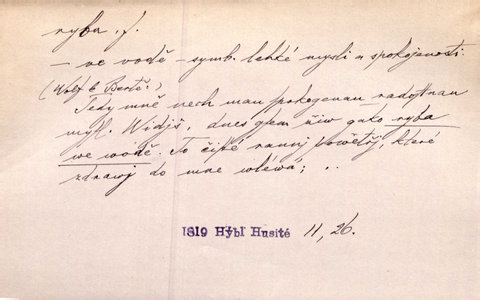 ryba, f.
— ve vodě — symb. lehké mysli a spokojenosti.
(Wolf b Bertě:)
Tedy mně nech mau pokogenau radostnau
mysl. Widjš, dnes gsem čiw gako ryba
we wodě. To čisté rannj powětřj, které
zdrawj do mne wléwá; ..
1819 Hýbl Husité II, 26.